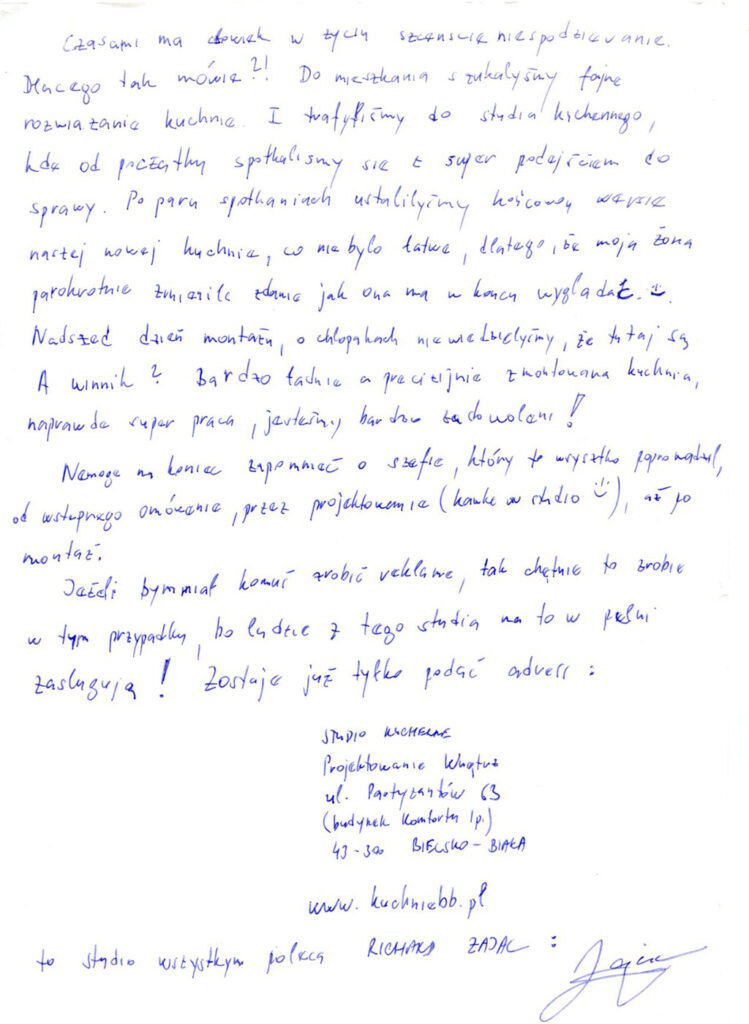 Czasami ma człowiek w życiu szczęscie niespodziewanie.
Dlaczego tak mówię?! Do mieszkania szukalyśmy fajne
rozwiazanie kuchnie. I trafyliśmy do studia kuchennego,
kde od początku spotkalismy się z super podejściem do
sprawy. Po paru spotkaniach ustalilyśmy końcową wersie
naszej nowej kuchnie, co nie bylo łatwe, dlatego, że moja żona
parokrotnie zmienile zdanie jak ona ma w końcu wygladać.
Nadszed dzień montażu, o chlopakach nie wiedzielyśmy, że tutaj są
A winnik? Bardzo ładnie a precizijnie zmontowana kuchnia,
naprawde super praca, jesteśmy bardzo zadowoleni!
Nemoge na koniec zapomnieć o szefie, który to wszystko poprowadzil,
od wstupnego omówienie, przez projektowanie (kawke w studio), aż po
montaż.
Jeżeli bym miał komuś zrobić reklame, tak chętnie to zrobie
w tym przypadku, bo ludzie z tego studia na to w pełni
zaslugują! Zostaje już tylko podać adress:
STUDIO KUCHENNE
Projektowanie Wnętrz
ul. Partyzantów 63
(budynek Komfortu Ip.)
43-300 BIELSKO-BIAŁA
www.kuchniebb.pl
to studio wszystkym poleca RICHARD ZAJAC: